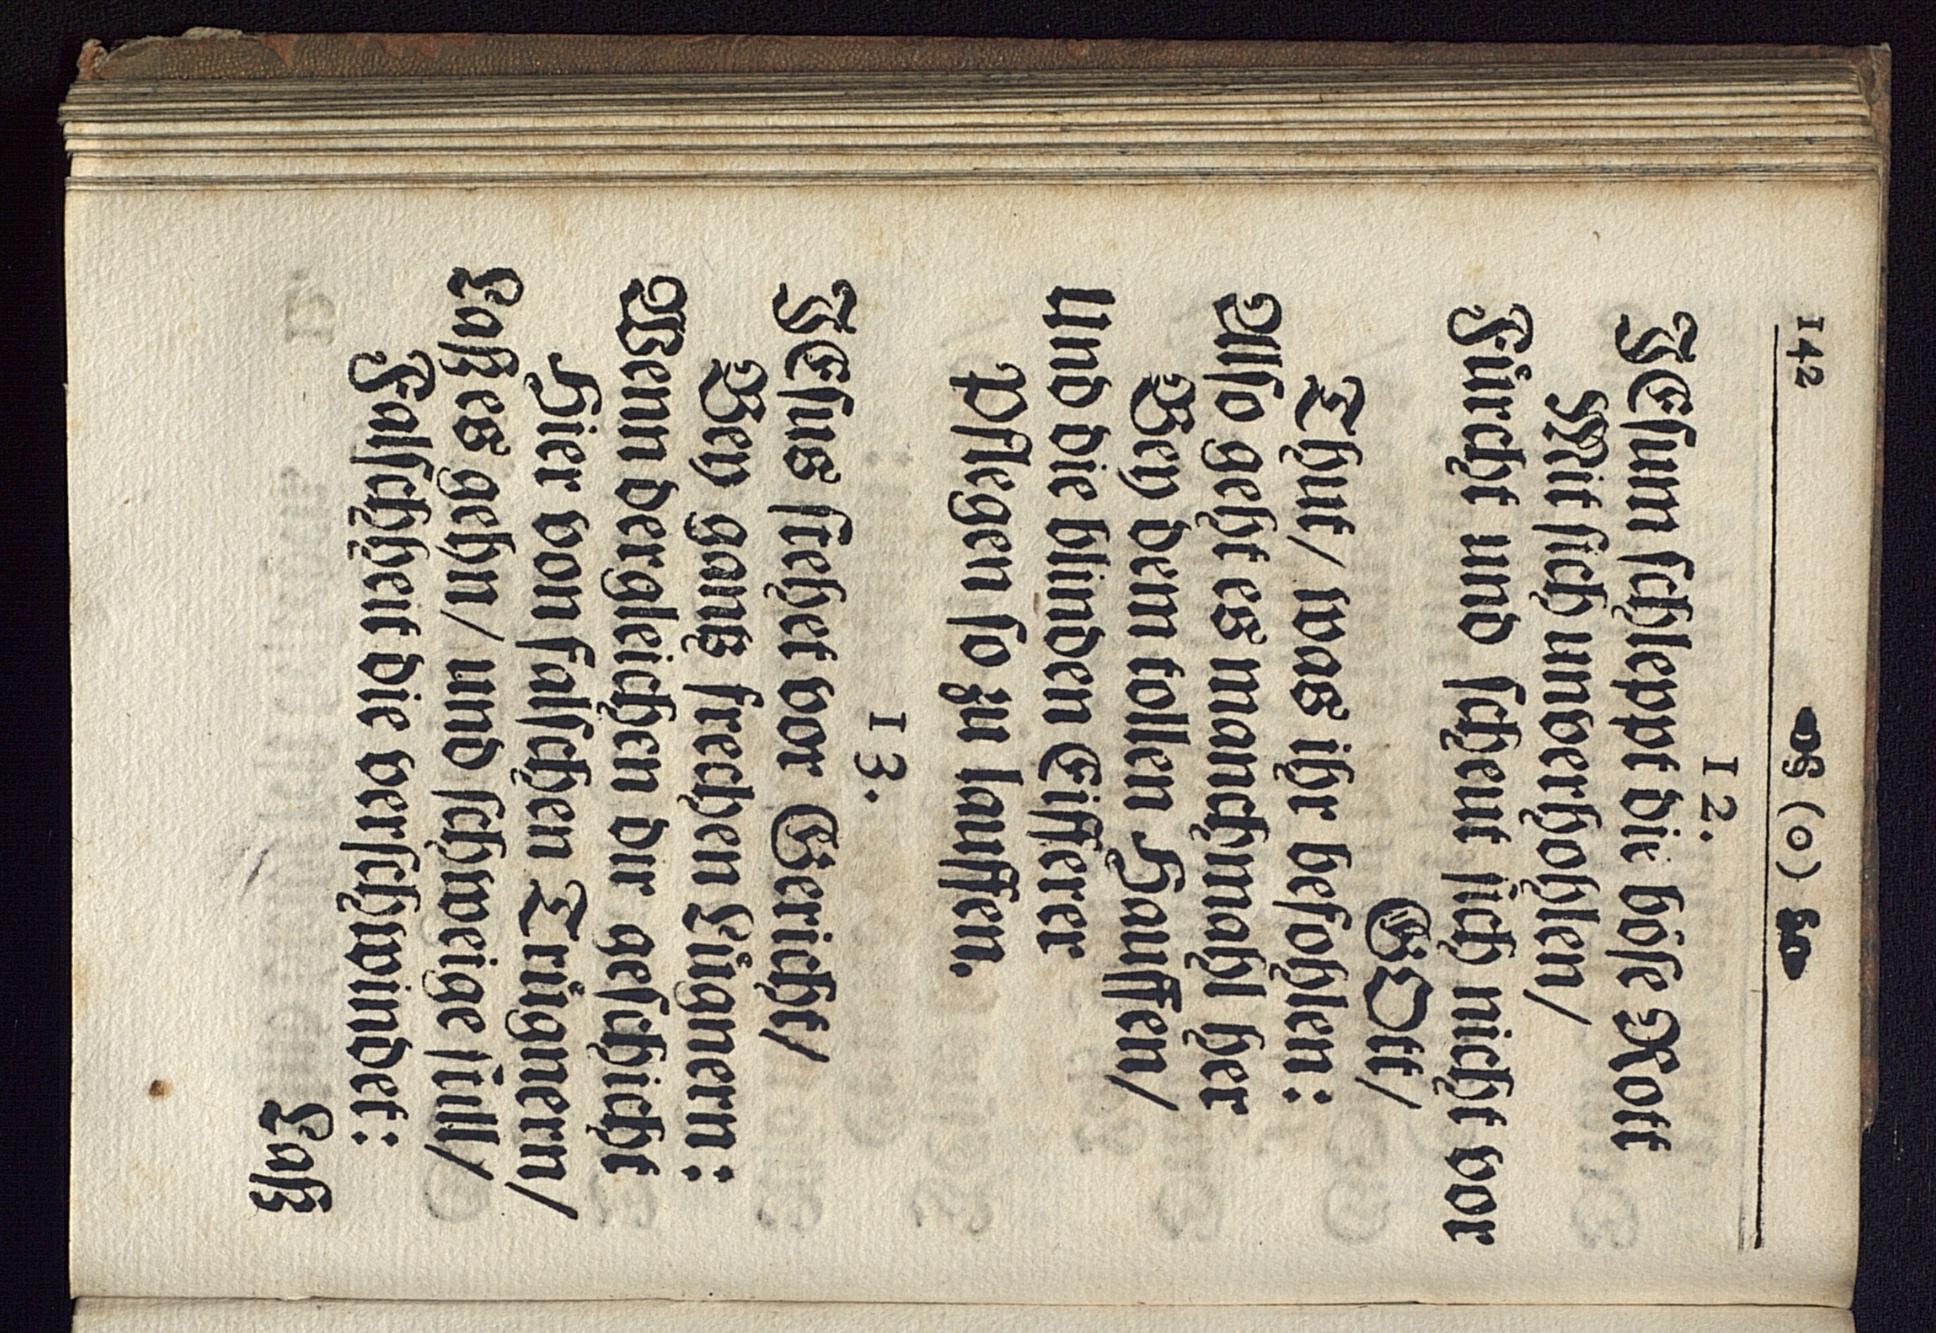 142 (o)
12.
JEsum schleppt die böse Rott
Mit sich unverhohlen/
Fürcht und scheut sich nicht vor
GOtt/
Thut/ was ihr befohlen:
Also geht es manchmahl her
Bey dem tollen Hauffen/
Und die blinden Eifferer
Pflegen so zu lauffen.
13.
JEsus stehet vor Gericht/
Bey gantz frechen Lügnern:
Wenn dergleichen dir geschicht
Hier von falschen Trügnern/
Laß es gehn/ und schweige still/
Falschheit die verschwindet:
Laß